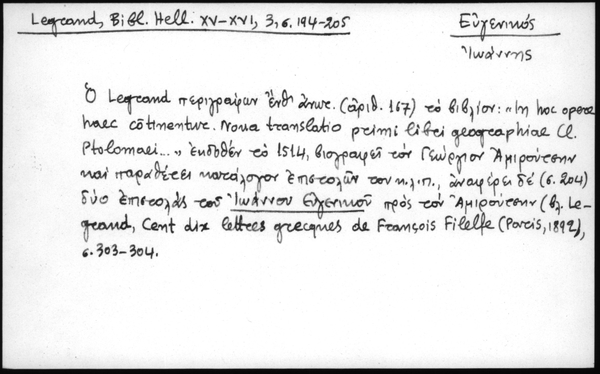 Legrand, Bibl. Hell. XV-XVI, 3, σ. 194-205
Εὐγενικός
Ἰωάννης
Ὁ Legrand περιγράφων ἔνθ' ἀνωτ. (ἀριθ. 167) τὸ βιβλίον: "In hoc opere
haec cōtinentur. Noua translatio primi libri geographiae Cl.
Ptolomaei..." ἐκδοθὲν τὸ 1514, βιογραφεῖ τὸν Γεώργιον Ἀμιρούτσην
καὶ παραθέτει κατάλογον ἐπιστολῶν του κ.λ.π., ἀναφέρει δέ (σ. 204)
δύο ἐπιστολὰς τοῦ Ἰωάννου Εὐγενικοῦ πρὸς τὸν Ἀμιρούτσην (βλ. Le-
grand, Cent dix lettres grecques de François Filelfe (Paris, 1892),
σ. 303-304.